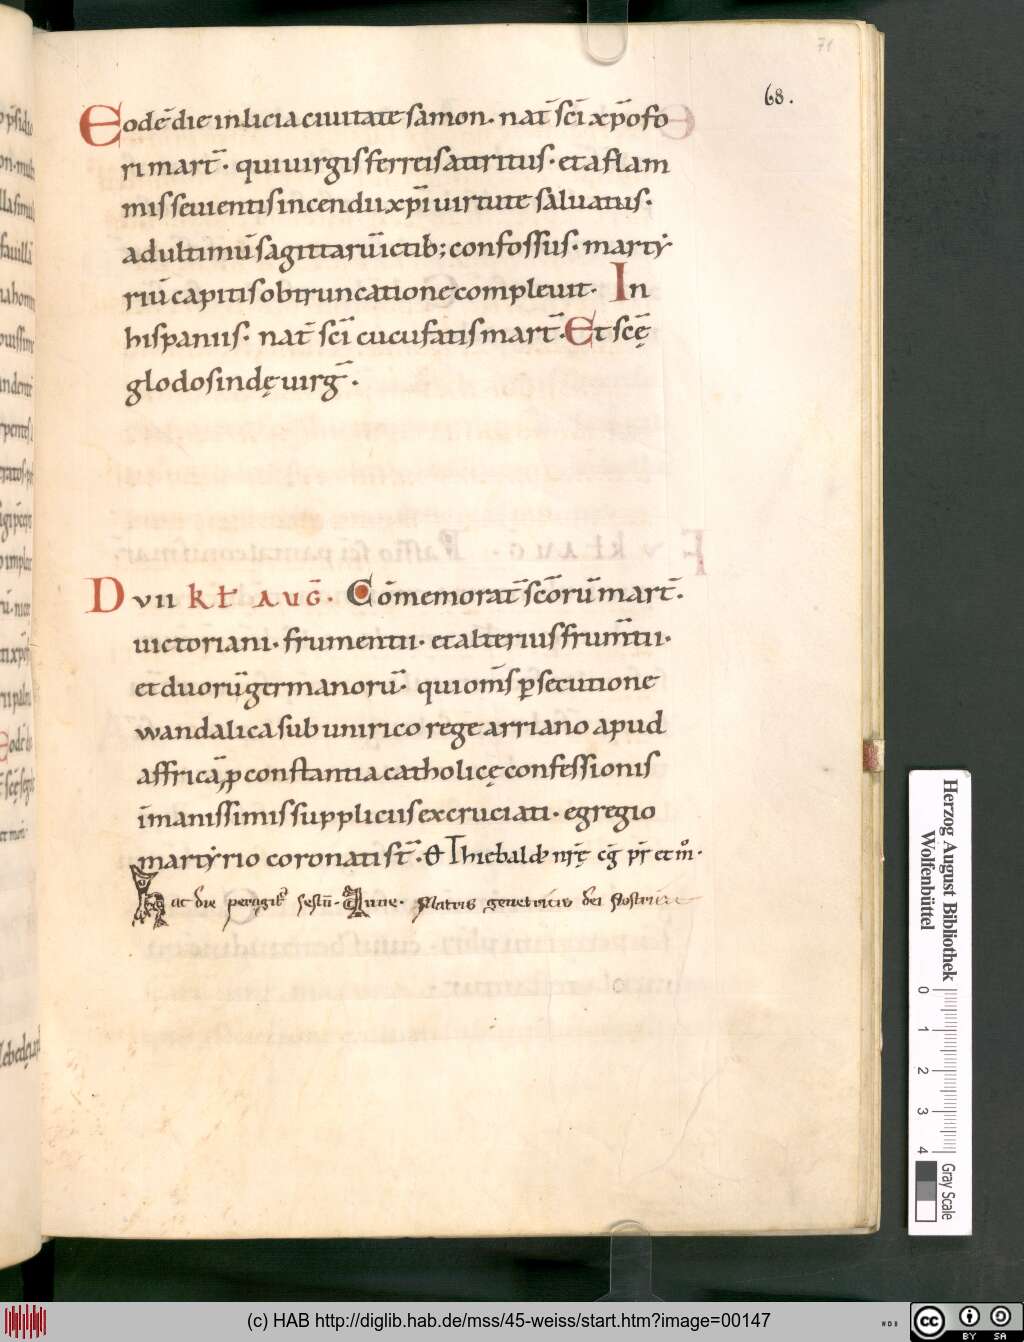 71
68.
Eodē die in licia ciuitate samon. nat̄ sc̄i xp̄ofo
ri mart̄. qui uirgis ferreis attritus. et a flam
mis seuientis incendii xp̄i uirtute saluatus.
ad ultimū sagittarū ictib; confossus. marty
riū capitis obtruncatione compleuit. In
hispaniis. nat̄ sc̄i cucufatis mart̄. Et sc̄ę
glodosindę uirḡ.
D VII kł AUḠ. Cōmemorat̄ sc̄orū mart̄.
uictoriani. frumentii. et alterius frum̄tii.
et duorū germanorū. qui om̄s ꝑsecutione
wandalica sub unirico rege arriano apud
affricā, ꝓ constantia catholicę confessionis
īmanissimis suppliciis excruciati. egregio
martyrio coronati st̄. Thiebald
Hac die festū Anne. Matris genetricis dei
(c) HAB http://diglib.hab.de/mss/45-weiss/start.htm?image=00147
Herzog August Bibliothek
Wolfenbüttel
0 1 2 3 4
Gray Scale
cc BY SA